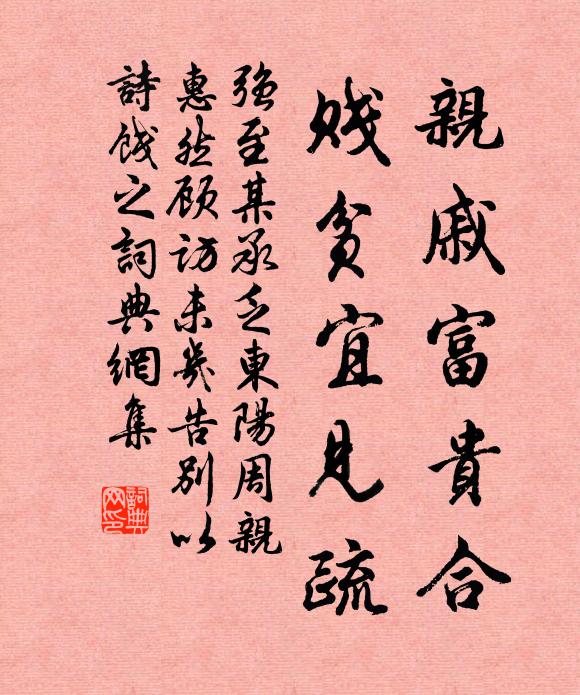 親戚富貴合
賤貧宜見疏
强至某承乏東陽周親
惠然顾訪未幾告別以
詩餞之詞典網集
詞典
网印